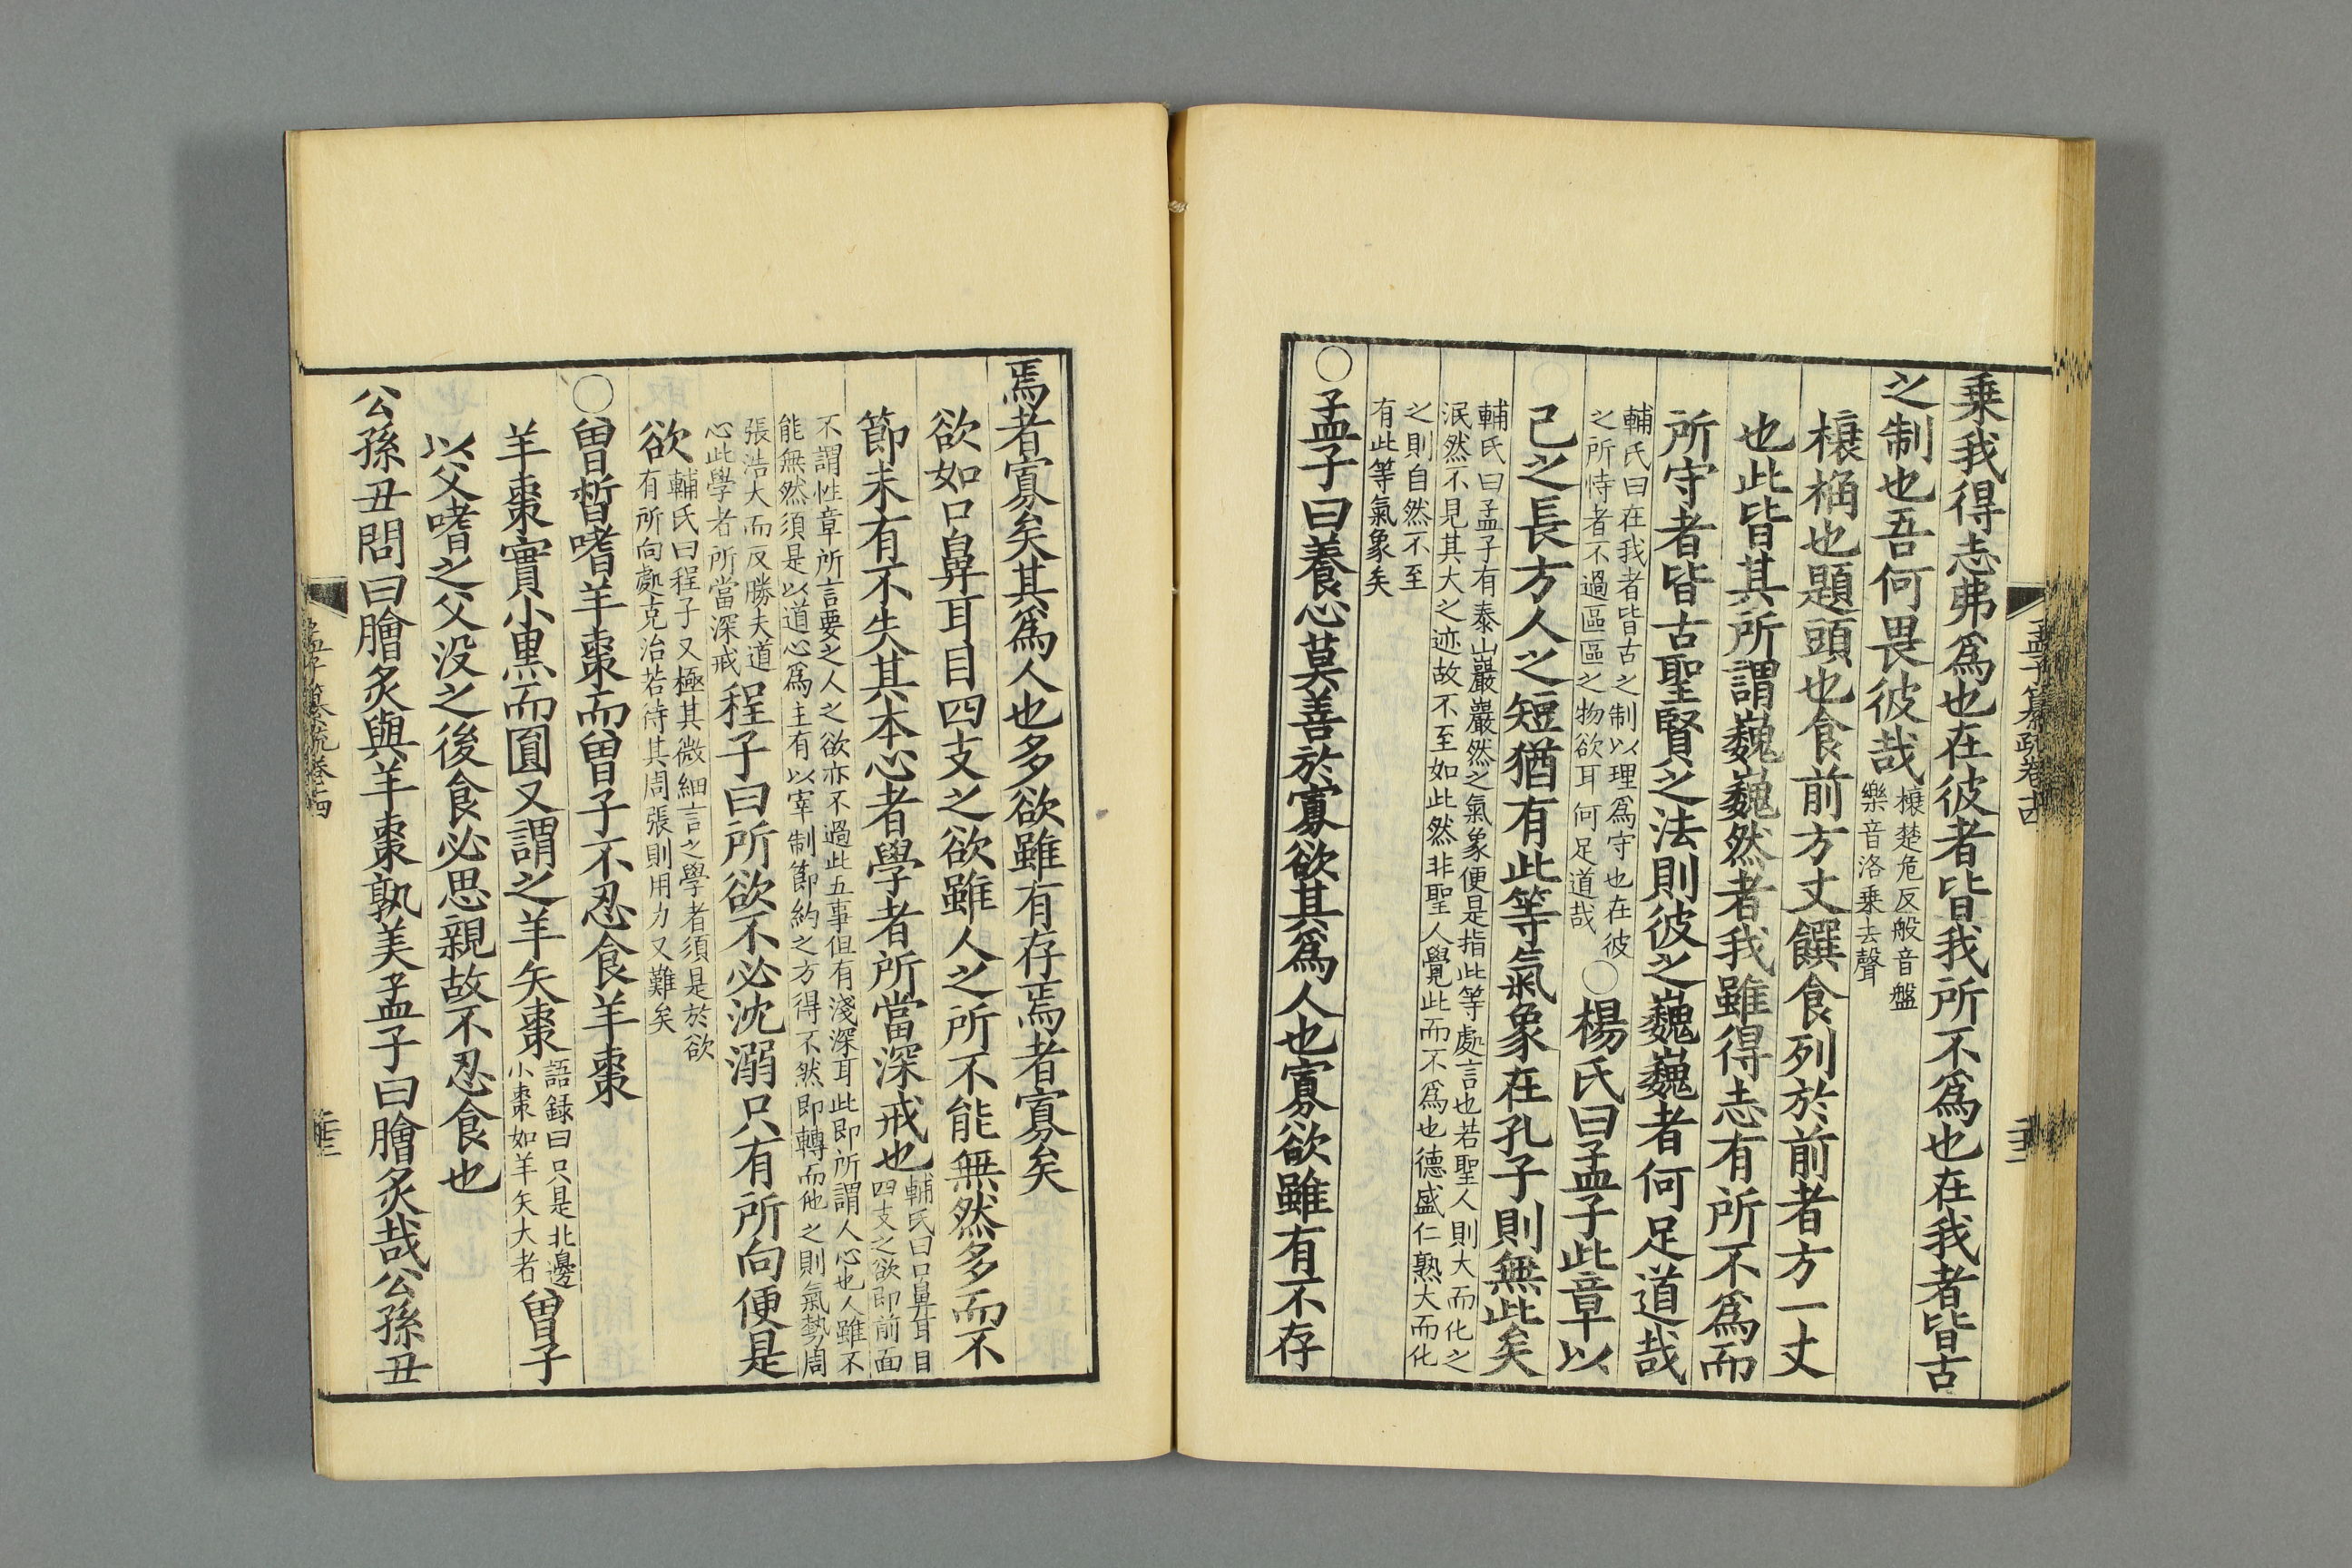 孟子纂疏卷十四
乗我得志弗爲也在彼者皆我所不爲也在我者皆古
之制也吾何畏彼哉
榱楚危反般音盤
樂音洛乗去聲
榱桷也題頭也食前方丈饌食列於前者方一丈
也此皆其所謂巍巍然者我雖得志有所不爲而
所守者皆古聖賢之法則彼之巍巍者何足道哉
輔氏曰在我者皆古之制以理爲守也在彼
之所恃者不過區區之物欲耳何足道哉
○楊氏曰孟子此章以
己之長方人之短猶有此等氣象在孔子則無此矣
輔氏曰孟子有泰山巖巖然之氣象便是指此等處言也若聖人則大而化之
泯然不見其大之迹故不至如此然非聖人覺此而不爲也德盛仁熟大而化
之則自然不至
有此等氣象矣
○孟子曰養心莫善於寡欲其爲人也寡欲雖有不存
焉者寡矣其爲人也多欲雖有存焉者寡矣
欲如口鼻耳目四支之欲雖人之所不能無然多而不
節未有不失其本心者學者所當深戒也
輔氏曰口鼻耳目
四支之欲即前面
不謂性章所言要之人之欲亦不過此五事但有淺深耳此即所謂人心也人雖不
能無然須是以道心爲主有以宰制節約之方得不然即轉而他之則氣勢周
張浩大而反勝夫道
心此學者所當深戒
程子曰所欲不必沈溺只有所向便是
欲
輔氏曰程子又極其微細言之學者須是於欲
有所向處克治若待其周張則用力又難矣
○曾晳嗜羊棗而曾子不忍食羊棗
羊棗實小黒而圓又謂之羊矢棗
語録曰只是北邊
小棗如羊矢大者
曾子
以父嗜之父没之後食必思親故不忍食也
公孫丑問曰膾炙與羊棗孰美孟子曰膾炙哉公孫丑
孟子纂疏卷十四